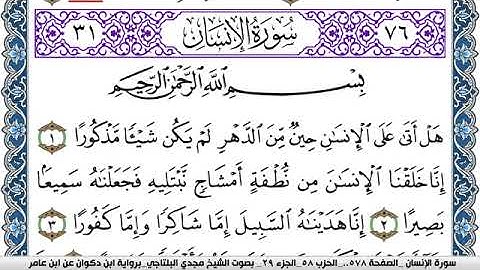 ٧٦ سُورَةُ الإِنسَانِ ٣١
بِسْمِ اللَّهِ الرَّحْمَٰنِ الرَّحِيمِ
هَلْ أَتَىٰ عَلَى الْإِنسَٰنِ حِينٌ مِّنَ الدَّهْرِ لَمْ يَكُن شَيْـًٔا مَّذْكُورًا ١
إِنَّا خَلَقْنَا الْإِنسَٰنَ مِن نُّطْفَةٍ أَمْشَاجٍ نَّبْتَلِيهِ فَجَعَلْنَٰهُ سَمِيعًۢا
بَصِيرًا ٢ إِنَّا هَدَيْنَٰهُ السَّبِيلَ إِمَّا شَاكِرًا وَإِمَّا كَفُورًا ٣
سورة الإنسان _ الصفحة ٥٧٨.._ الحزب ٥٨_الجزء ٢٩_ بصوت الشيخ مجدي البلتاجي_برواية ابن ذكوان عن ابن عامر